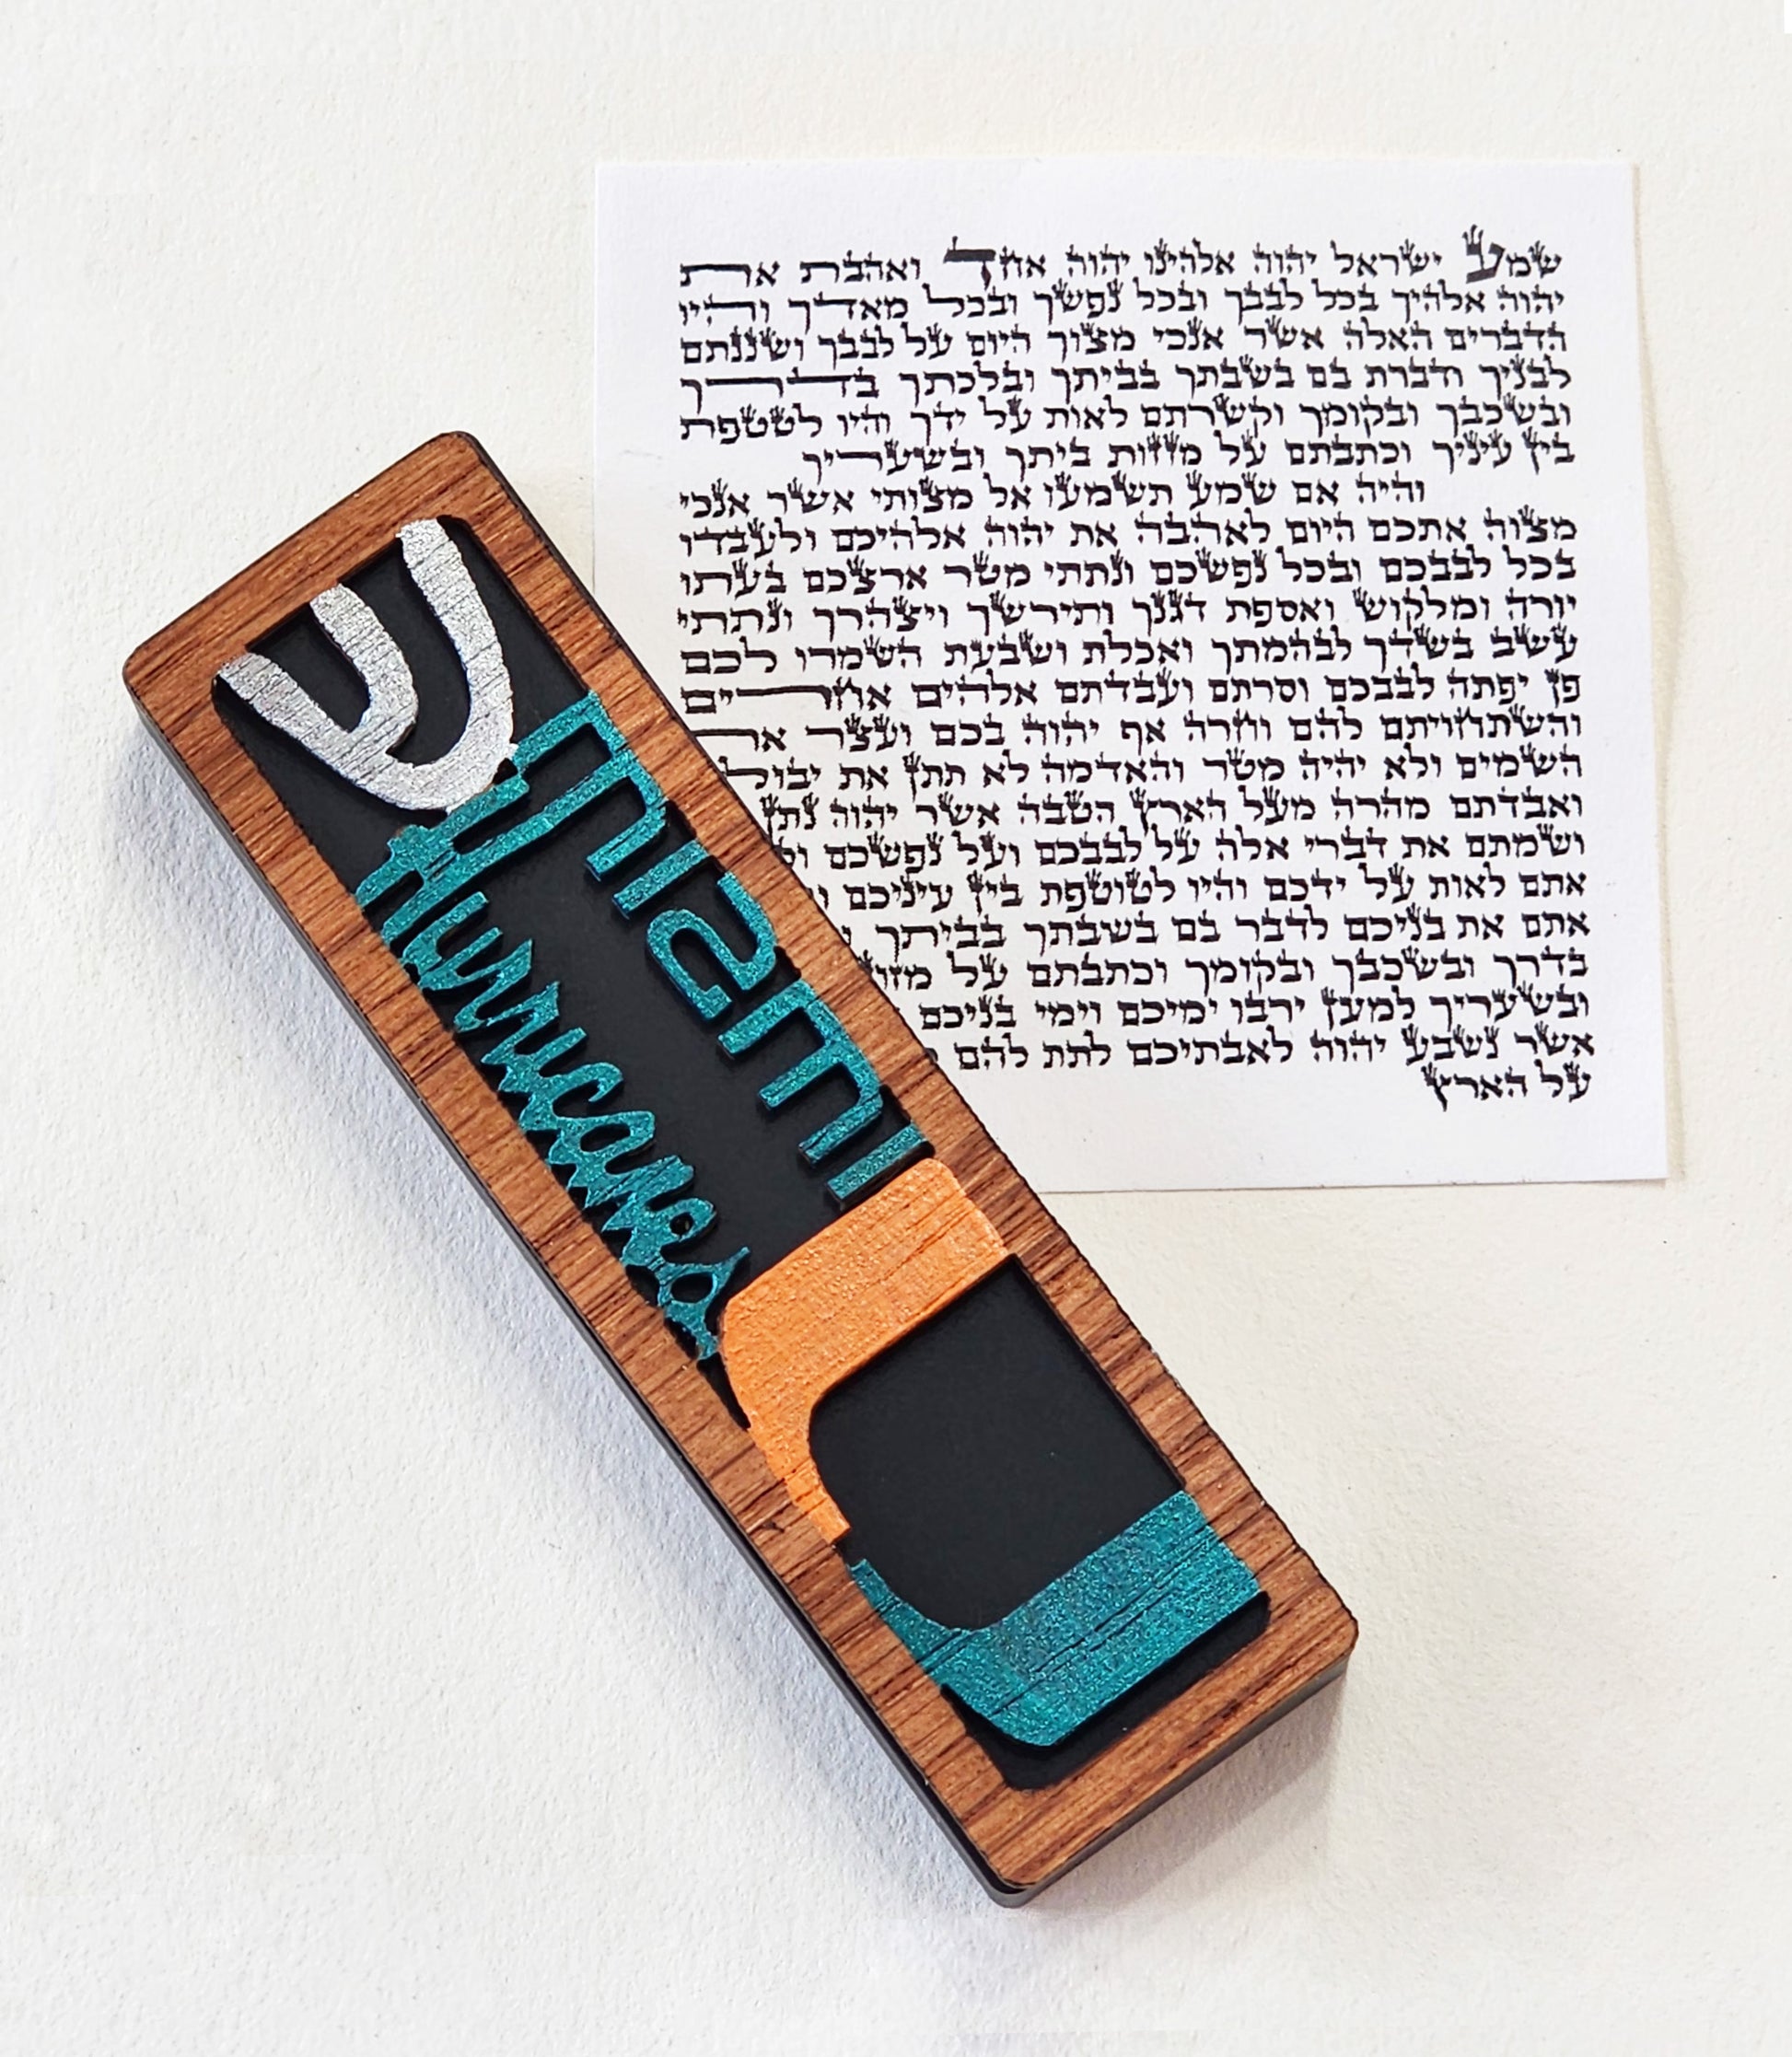 שמע ישראל יהוה אלהינו יהוה אחד ואהבת את
יהוה אלהיך בכל לבבך ובכל נפשך ובכל מאדך והיו
הדברים האלה אשר אנכי מצוך היום על לבבך ושננתם
לבניך ודברת בם בשבתך בביתך ובלכתך בדרך
ובשכבך ובקומך וקשרתם לאות על ידך והיו לטטפת
בין עיניך וכתבתם על מזזות ביתך ובשעריך
והיה אם שמע תשמעו אל מצותי אשר אנכי
מצוה אתכם היום לאהבה את יהוה אלהיכם ולעבדו
בכל לבבכם ובכל נפשכם ונתתי מטר ארצכם בעתו
יורה ומלקוש ואספת דגנך ותירשך ויצהרך ונתתי
עשב בשדך לבהמתך ואכלת ושבעת השמרו לכם
פן יפתה לבבכם וסרתם ועבדתם אלהים אחרים
והשתחויתם להם וחרה אף יהוה בכם ועצר את
השמים ולא יהיה מטר והאדמה לא תתן את
ואבדתם מהרה מעל הארץ הטבה אשר יהוה נתן
ושמתם את דברי אלה על לבבכם ועל נפשכם
אתם לאות על ידכם והיו לטוטפת בין עיניכם
אתם את בניכם לדבר בם בשבתך בביתך
בדרך ובשכבך ובקומך וכתבתם על
ובשעריך למען ירבו ימיכם וימי בניכם
אשר נשבע יהוה לאבתיכם לתת להם
על הארץ
ש
miami
Hurricanes